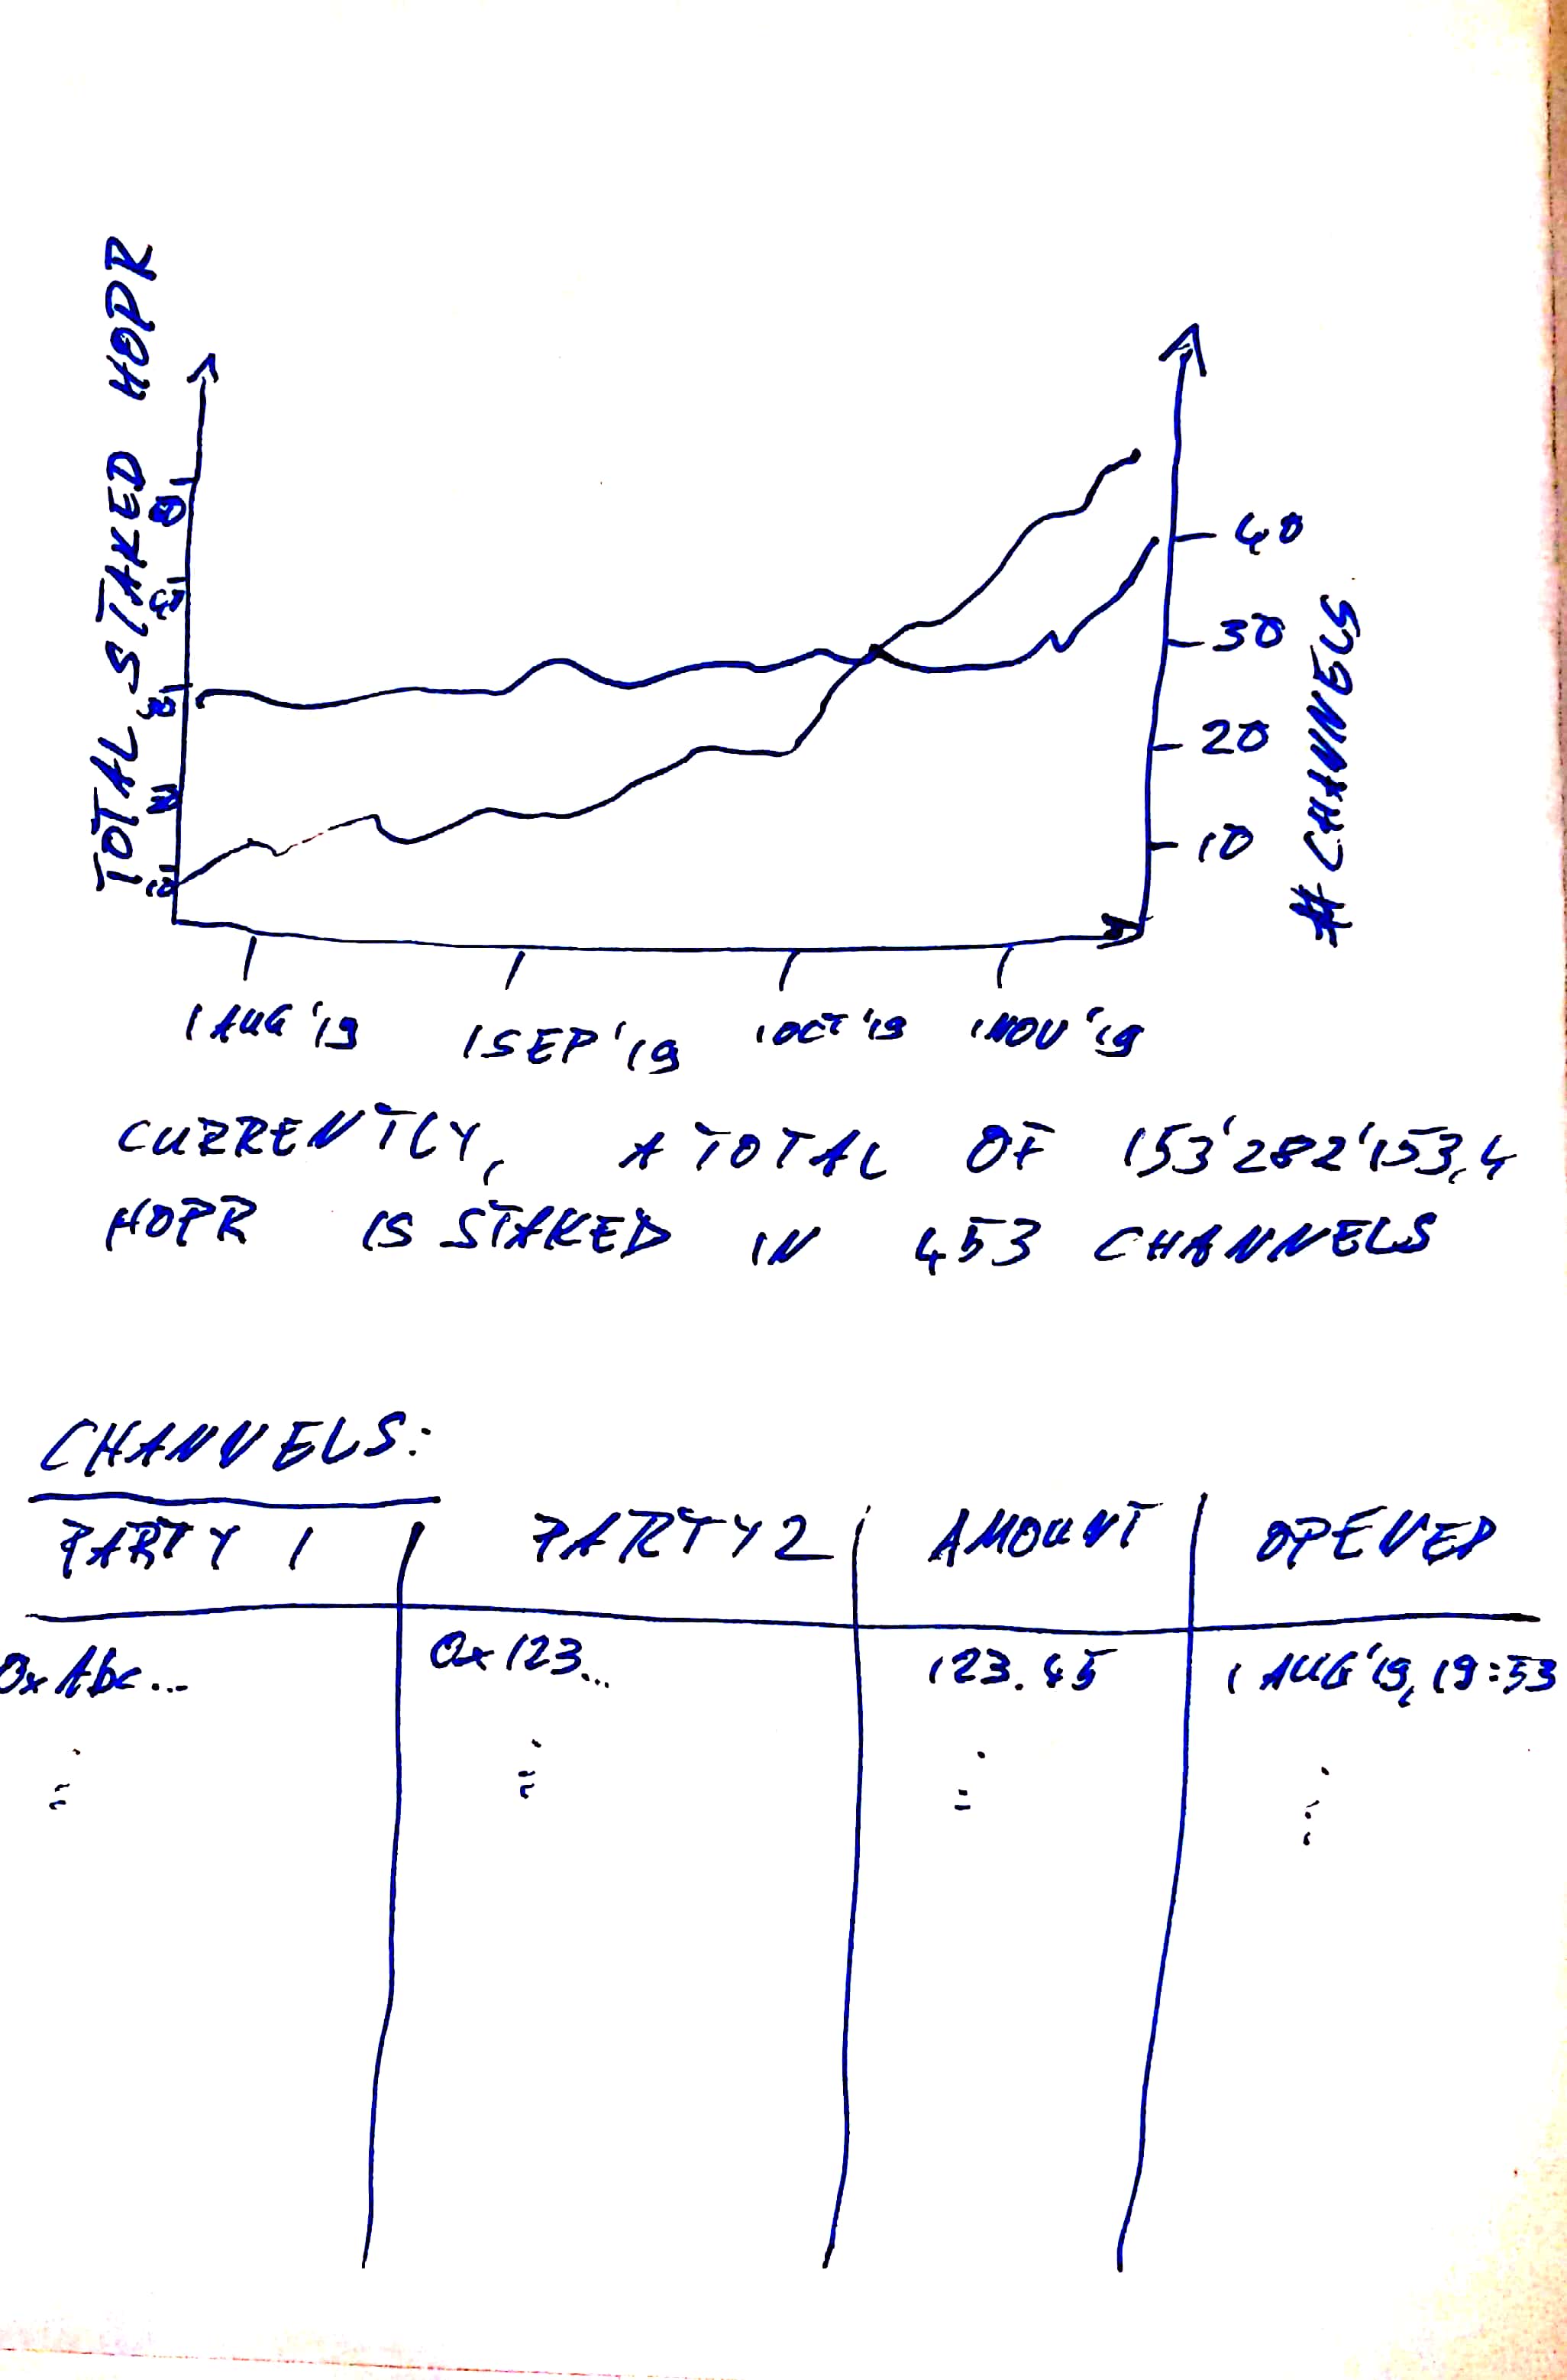 TOTAL STAKED HOPR
40
30
20
10
# CHANNELS
1 AUG '19
1 SEP '19
1 OCT '19
1 NOV '19
CURRENTLY, A TOTAL OF 153'282'153,4
HOPR IS STAKED IN 453 CHANNELS
CHANNELS:
PARTY 1 PARTY 2 AMOUNT OPENED
0x Abc... 0x 123... 123.45 1 AUG '19, 19:53